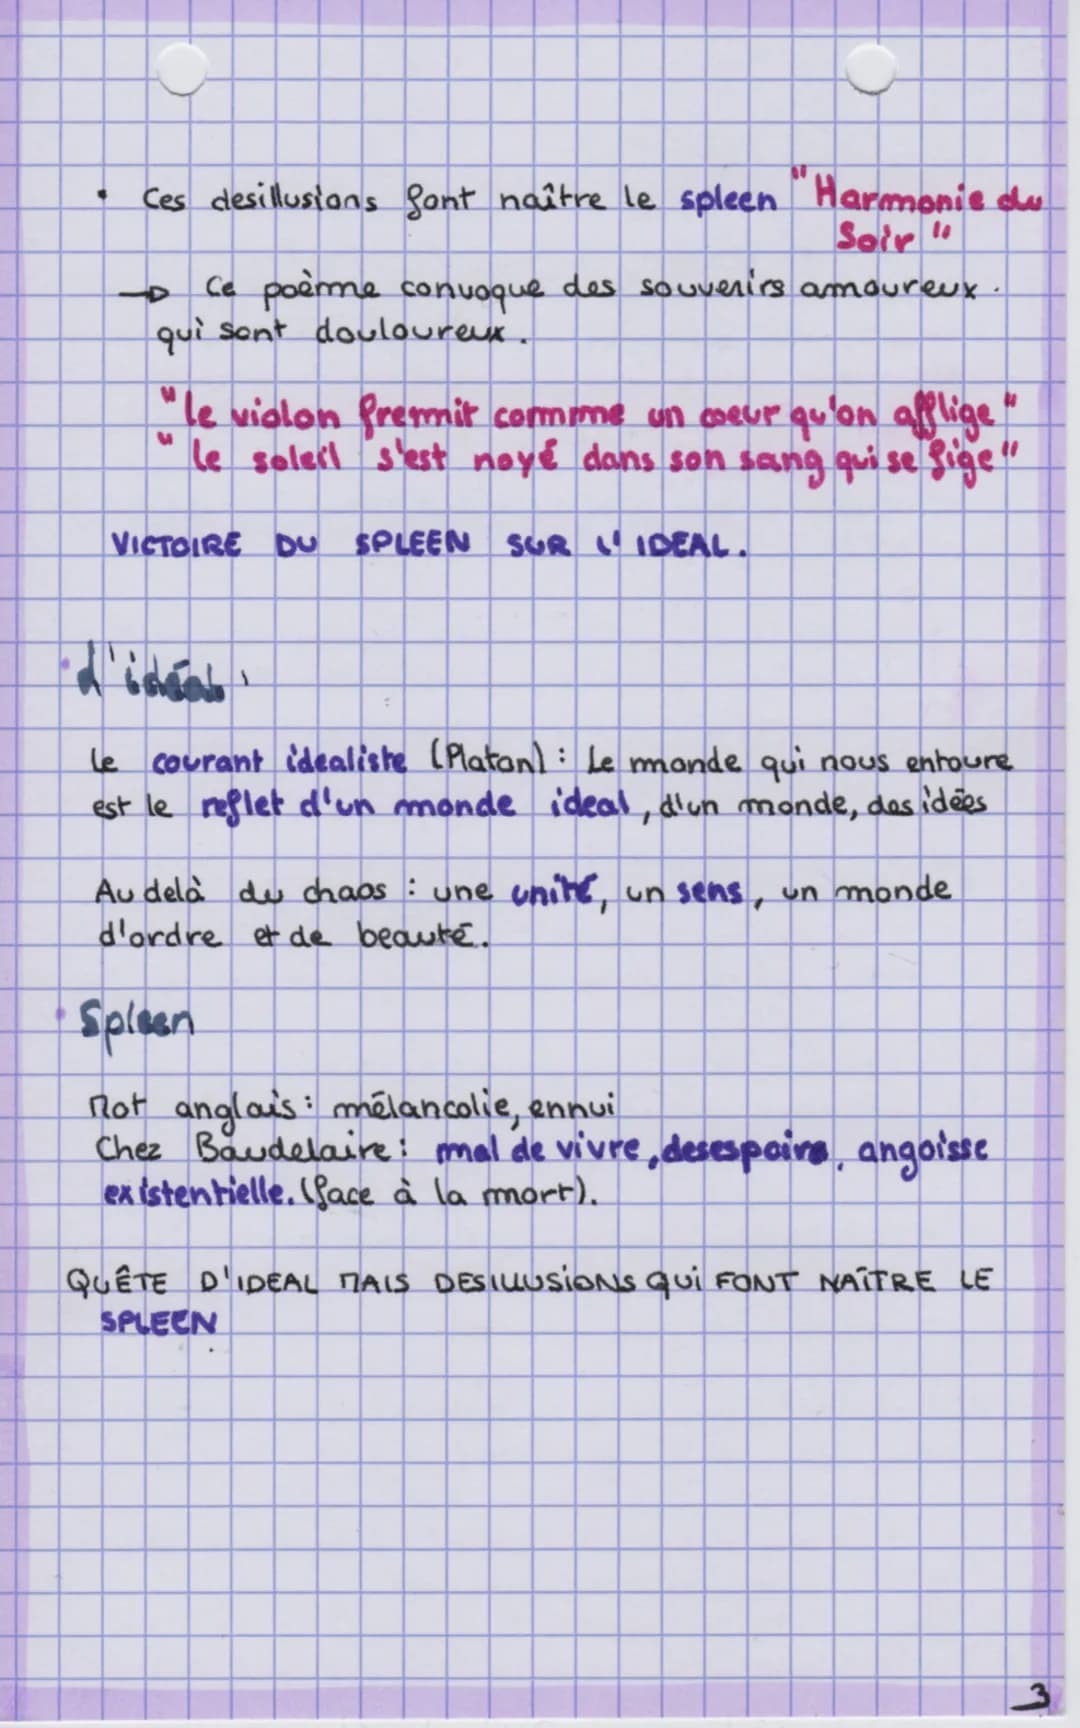 • Ces desillusions font naître le spleen "Harmonie du
Soir"
→ Ce poème convoque des souvenirs amoureux.
qui sont douloureux.
"le violon fremit comme un coeur qu'on afflige"
"le soleil s'est noyé dans son sang qui se fige"
VICTOIRE DU SPLEEN SUR L'IDEAL.
• L'idéal
Le courant idealiste (Platon) : Le monde qui nous entoure
est le reflet d'un monde ideal, d'un monde, des idées
Au delà du chaos : une unité, un sens, un monde
d'ordre et de beauté.
• Spleen
Mot anglais : mélancolie, ennui
Chez Baudelaire : mal de vivre, desespoire, angoisse
existentielle. (face à la mort).
QUÊTE D'IDEAL MAIS DESILLUSIONS QUI FONT NAÎTRE LE
SPLEEN
3